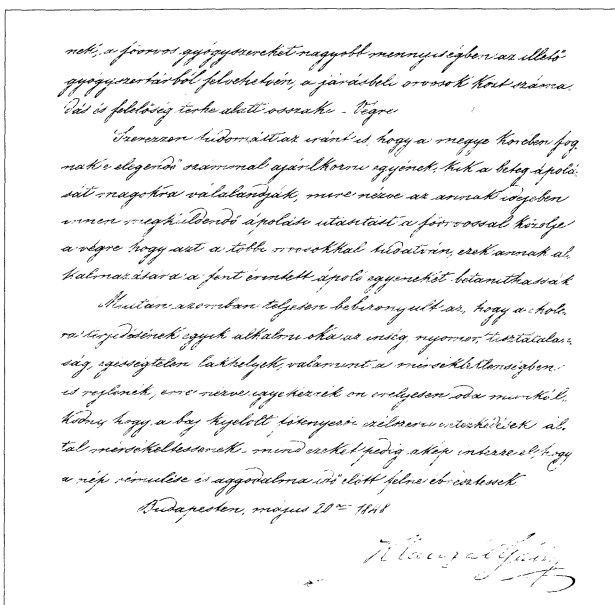 nek, a főorvos gyógyszereket nagyobb mennyiségben az illető
gyógyszertárból felvehetvén, a járásbeli orvosok közt száma-
dás és felelőség terhe alatt osszaki. - Végre
Szerezzen tudomást az iránt is, hogy a megye körében fog
nak e elegendő számmal ajánlkozni egyének, kik a beteg ápolá-
sát magokra válalandják, mire nézve az annak idejében
innen megküldendő ápolási utasítást a főorvossal közölje
a végre hogy azt a többi orvosokkal tudatván, ezek annak al-
kalmazására a fent érintett ápoló egyéneket betanithassák
Miután azomban teljesen bebizonyult az, hogy a chole-
ra terjedésének egyik alkalmi oka az inség, nyomor, tisztátalan-
ság, egésségtelen lakhelyek, valamint a mérsékletlenségben
is rejlenék, erre nézve igyekezzék ön erélyesen oda munkál-
kodni, hogy a baj kijelölt főtényezői célszerű intézkedések ál-
tal mérsékeltessenek - mind ezeket pedig akép intézze el, hogy
a nép rémülése és aggodalma idő előtt fel ne ébresztessék
Budapesten, május 20án 1848
Klauzál Gábor